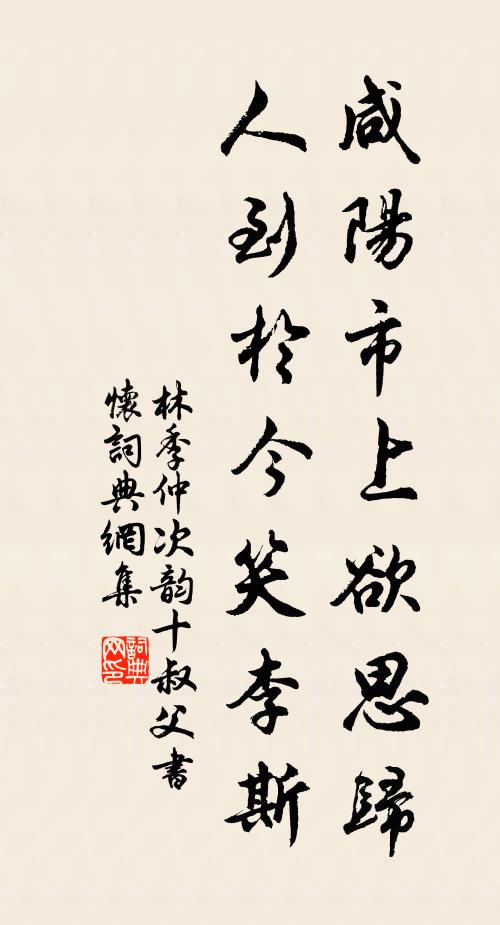 咸陽市上欲思歸
人到於今笑李斯
林季仲次韵十叔父書
懷詞典網集
詞典
网印